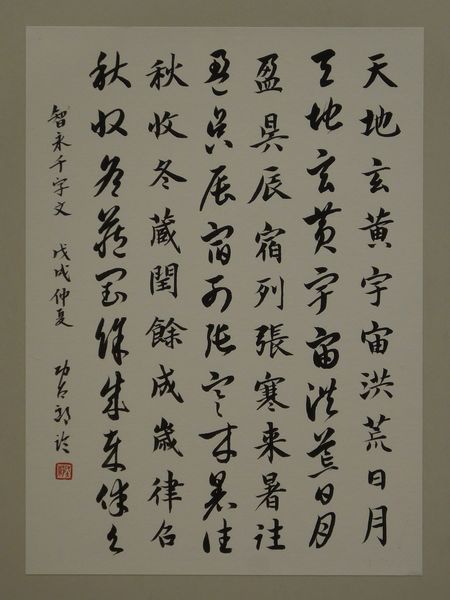 天地玄黄宇宙洪荒日月
天地玄黄宇宙洪荒日月
盈昃辰宿列張寒来暑往
盈昃辰宿列張寒来暑往
秋收冬蔵閏餘成歳律召
秋收冬蔵閏餘成歳律召
智永千字文 戊戌仲夏